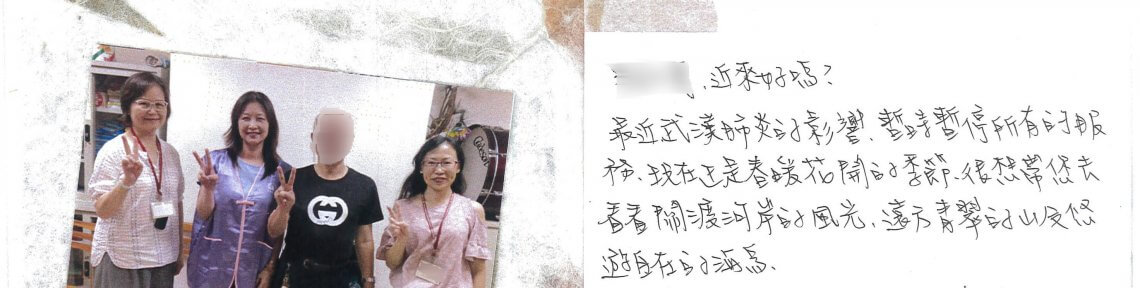 近來好嗎?
最近武漢肺炎的影響、暫時暫停所有的服
務、現在正是春暖花開的季節、很想帶您去
看看關渡河岸的風光、遠方青翠的山及悠
遊自在的海鳥.